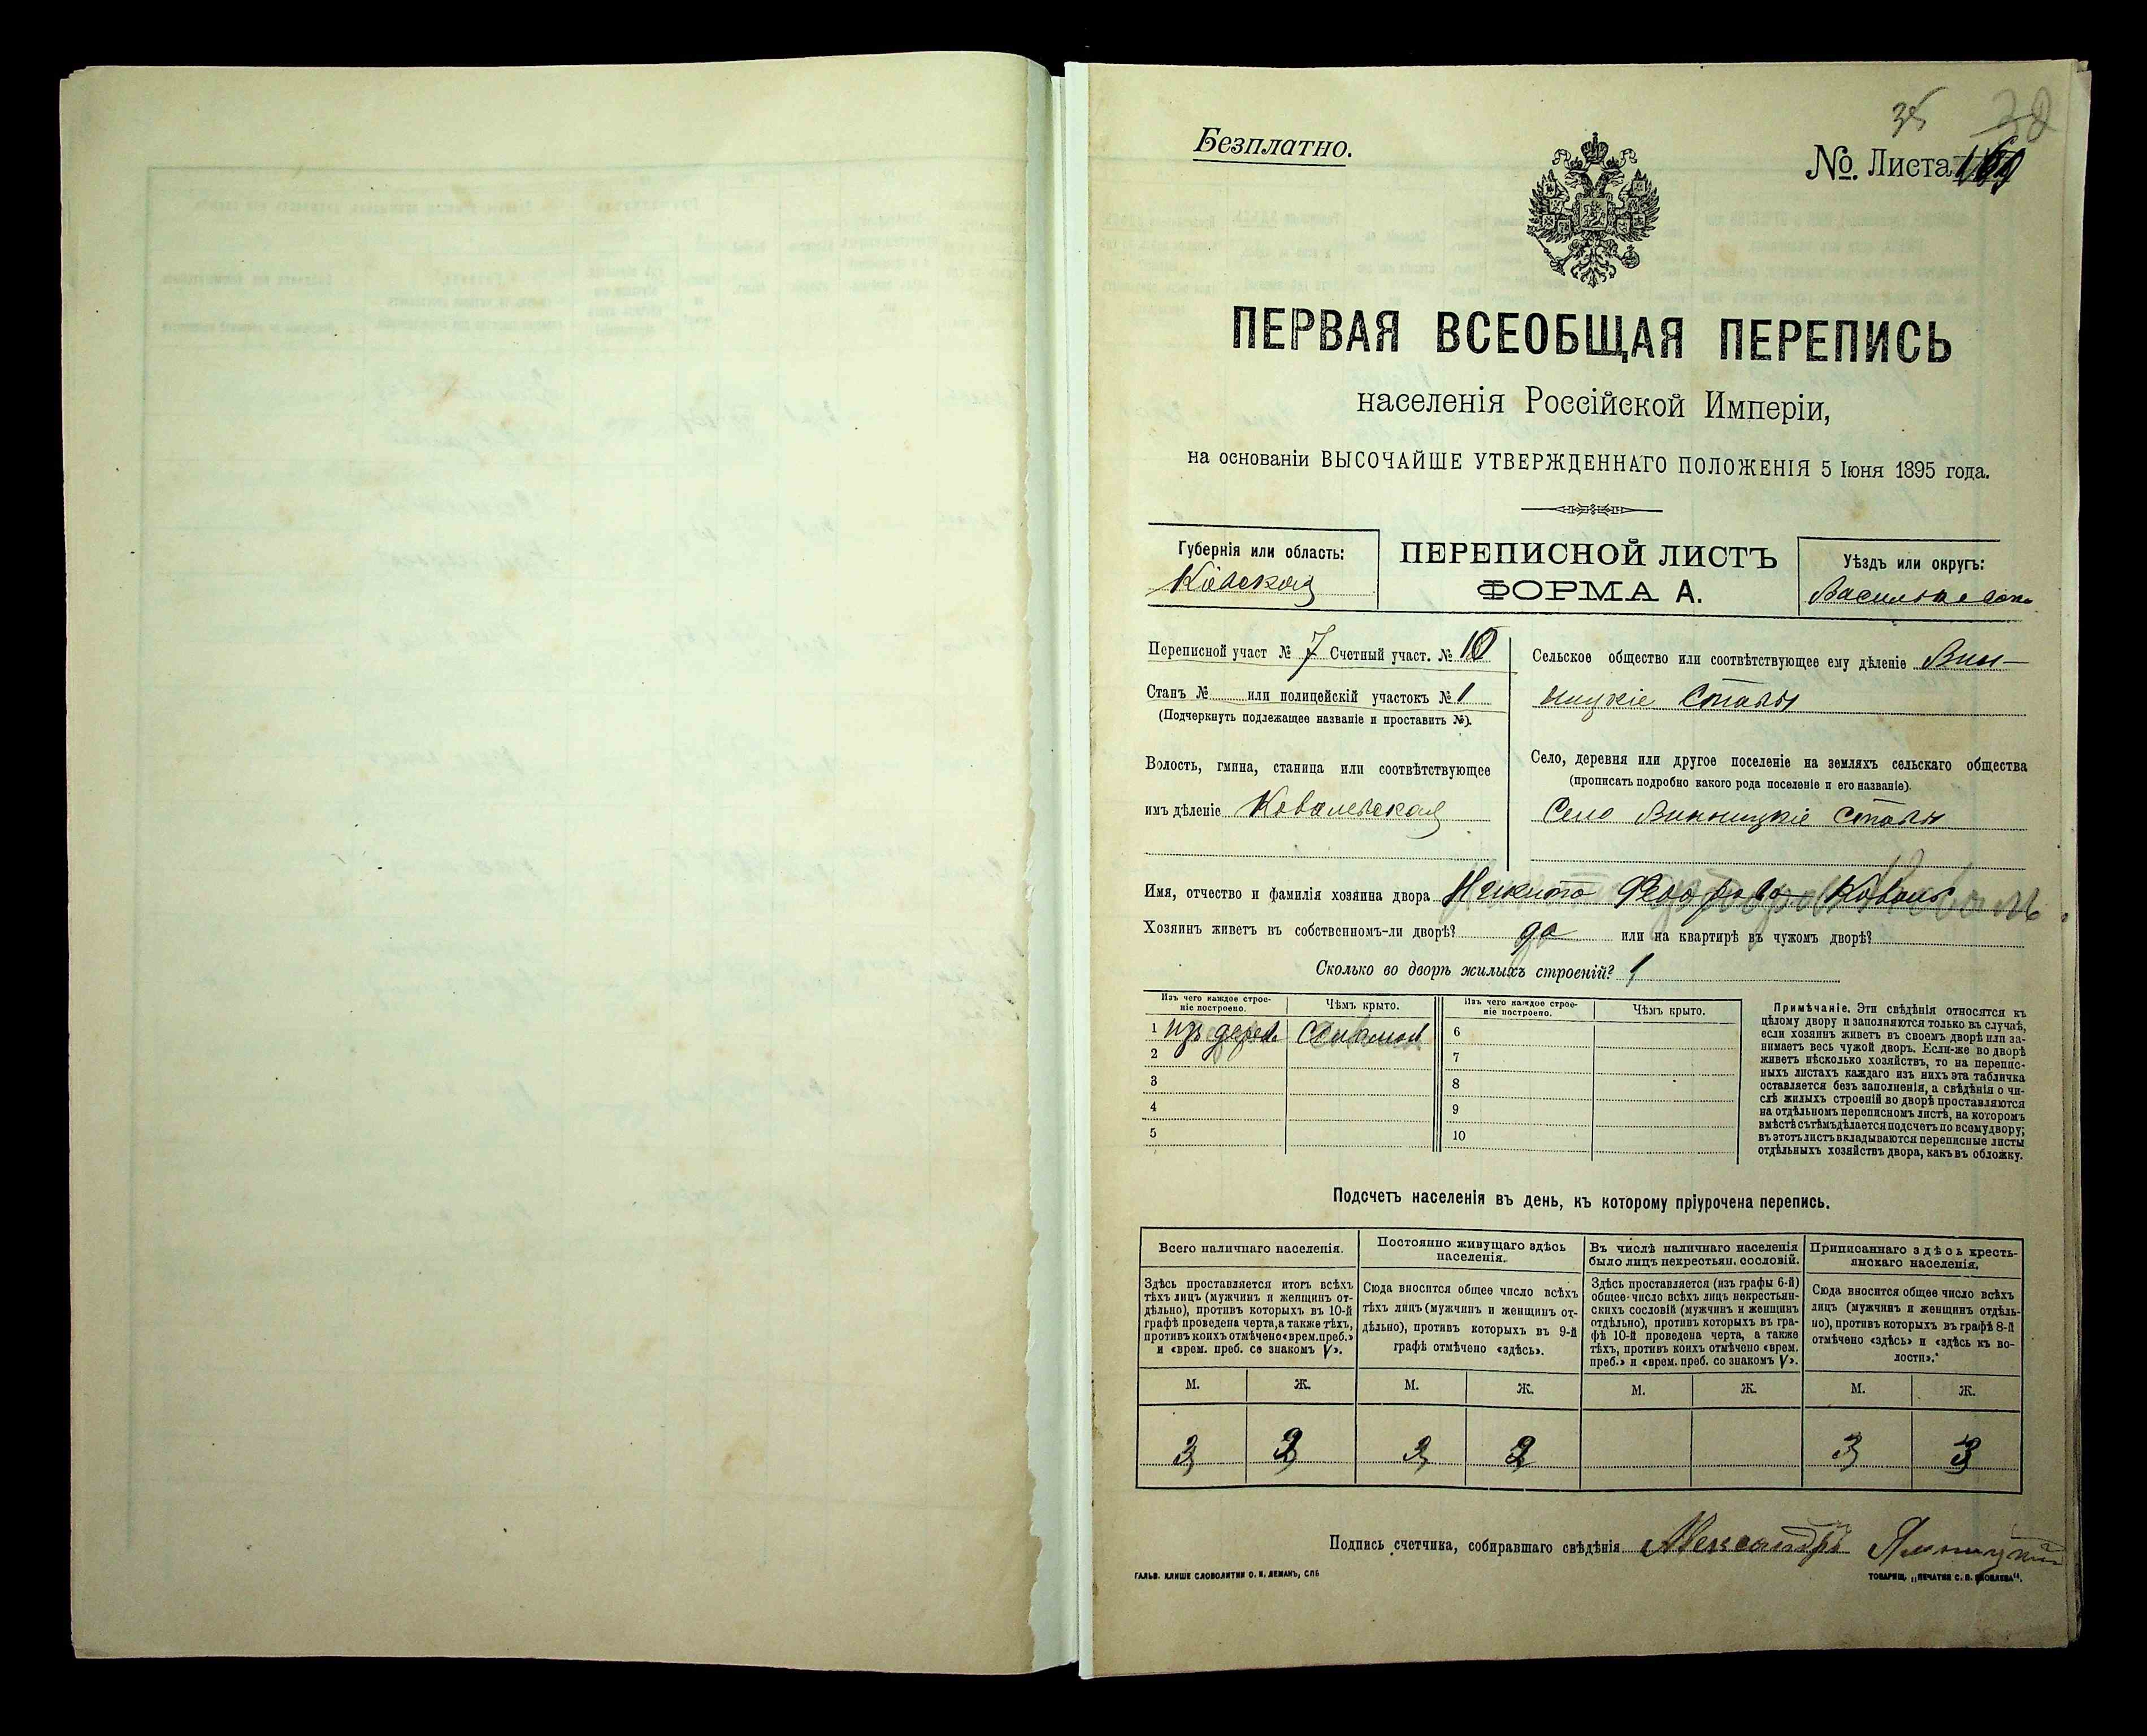 Безплатно.
35
№. Листа 169
ПЕРВАЯ ВСЕОБЩАЯ ПЕРЕПИСЬ
населенія Россійской Имперіи,
на основаніи ВЫСОЧАЙШЕ УТВЕРЖДЕННАГО ПОЛОЖЕНІЯ 5 Іюня 1895 года.
Губернія или область:
Кіевская
ПЕРЕПИСНОЙ ЛИСТЪ
ФОРМА А.
Уѣздъ или округъ:
Васильковск.
Переписной участ № 7 Счетный участ. № 10
Станъ № или полицейскій участокъ № 1
(Подчеркнуть подлежащее названіе и проставить №).
Волость, гмина, станица или соотвѣтствующее
имъ дѣленіе Ковалевская
Сельское общество или соотвѣтствующее ему дѣленіе Вин-
ницкіе Ставы
Село, деревня или другое поселеніе на земляхъ сельскаго общества
(прописать подробно какого рода поселеніе и его названіе).
Село Винницкіе Ставы
Имя, отчество и фамилія хозяина двора Никита Коваль
Хозяинъ живетъ въ собственномъ-ли дворѣ? да или на квартирѣ въ чужомъ дворѣ?
Сколько во дворѣ жилыхъ строеній? 1
Изъ чего каждое строе-
ніе построено.
Чѣмъ крыто.
Изъ чего каждое строе-
ніе построено.
Чѣмъ крыто.
1 изъ дерева соломой
2
3
4
5
6
7
8
9
10
Примѣчаніе. Эти свѣдѣнія относятся къ
цѣлому двору и заполняются только въ случаѣ,
если хозяинъ живетъ въ своемъ дворѣ или за-
нимаетъ весь чужой дворъ. Если-же во дворѣ
живетъ нѣсколько хозяйствъ, то на перепис-
ныхъ листахъ каждаго изъ нихъ эта табличка
оставляется безъ заполненія, а свѣдѣнія о чи-
слѣ жилыхъ строеній во дворѣ проставляются
на отдѣльномъ переписномъ листѣ, на которомъ
вмѣстѣ съ тѣмъ дѣлается подсчетъ по всему двору;
въ этотъ листъ вкладываются переписные листы
отдѣльныхъ хозяйствъ двора, какъ въ обложку.
Подсчетъ населенія въ день, къ которому пріурочена перепись.
Всего наличнаго населенія.
Здѣсь проставляется итогъ всѣхъ
тѣхъ лицъ (мужчинъ и женщинъ от-
дѣльно), противъ которыхъ въ 10-й
графѣ проведена черта, а также тѣхъ,
противъ коихъ отмѣчено «врем. преб.»
и «врем. преб. со знакомъ V».
Постоянно живущаго здѣсь
населенія.
Сюда вносится общее число всѣхъ
тѣхъ лицъ (мужчинъ и женщинъ от-
дѣльно), противъ которыхъ въ 9-й
графѣ отмѣчено «здѣсь».
Въ числѣ наличнаго населенія
было лицъ некрестьян. сословій.
Здѣсь проставляется (изъ графы 6-й)
общее число всѣхъ лицъ некрестьян-
скихъ сословій (мужчинъ и женщинъ
отдѣльно), противъ которыхъ въ гра-
фѣ 10-й проведена черта, а также
тѣхъ, противъ коихъ отмѣчено «врем.
преб.» и «врем. преб. со знакомъ V».
Приписаннаго здѣсь кресть-
янскаго населенія.
Сюда вносится общее число всѣхъ
лицъ (мужчинъ и женщинъ отдѣль-
но), противъ которыхъ въ графѣ 8-й
отмѣчено «здѣсь» и «здѣсь къ во-
лости».
М. Ж. М. Ж. М. Ж. М. Ж.
3 3
Подпись счетчика, собиравшаго свѣдѣнія Александръ
ГАЛЬВ. КЛИШЕ СЛОВОЛИТНИ О. И. ЛЕМАНЪ, СПБ
ТОВАРИЩ. „ПЕЧАТНЯ С. П. ЯКОВЛЕВА“.